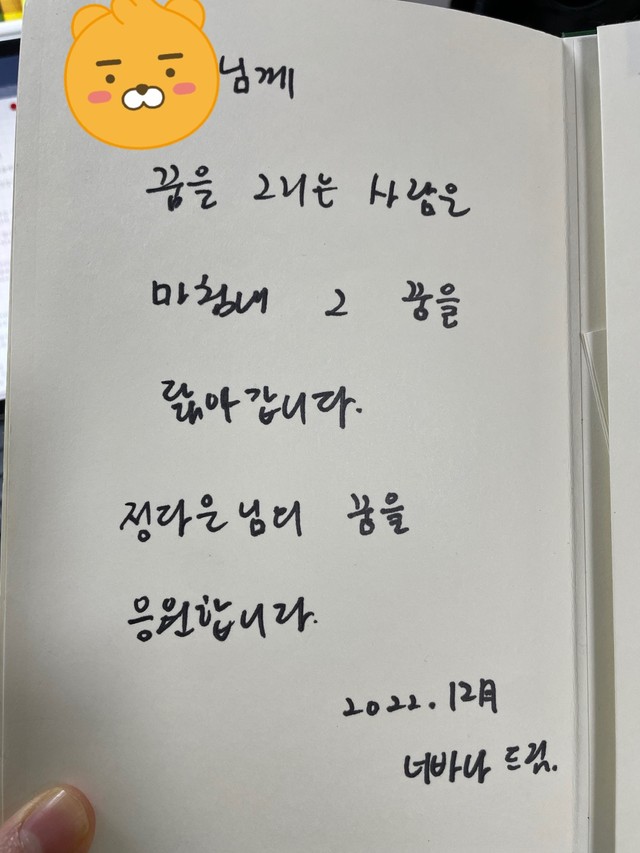 님께
꿈을 그리는 사람은
마침내 그 꿈을
닮아갑니다.
정다은님의 꿈을
응원합니다.
2022. 12月
너바나 드림.